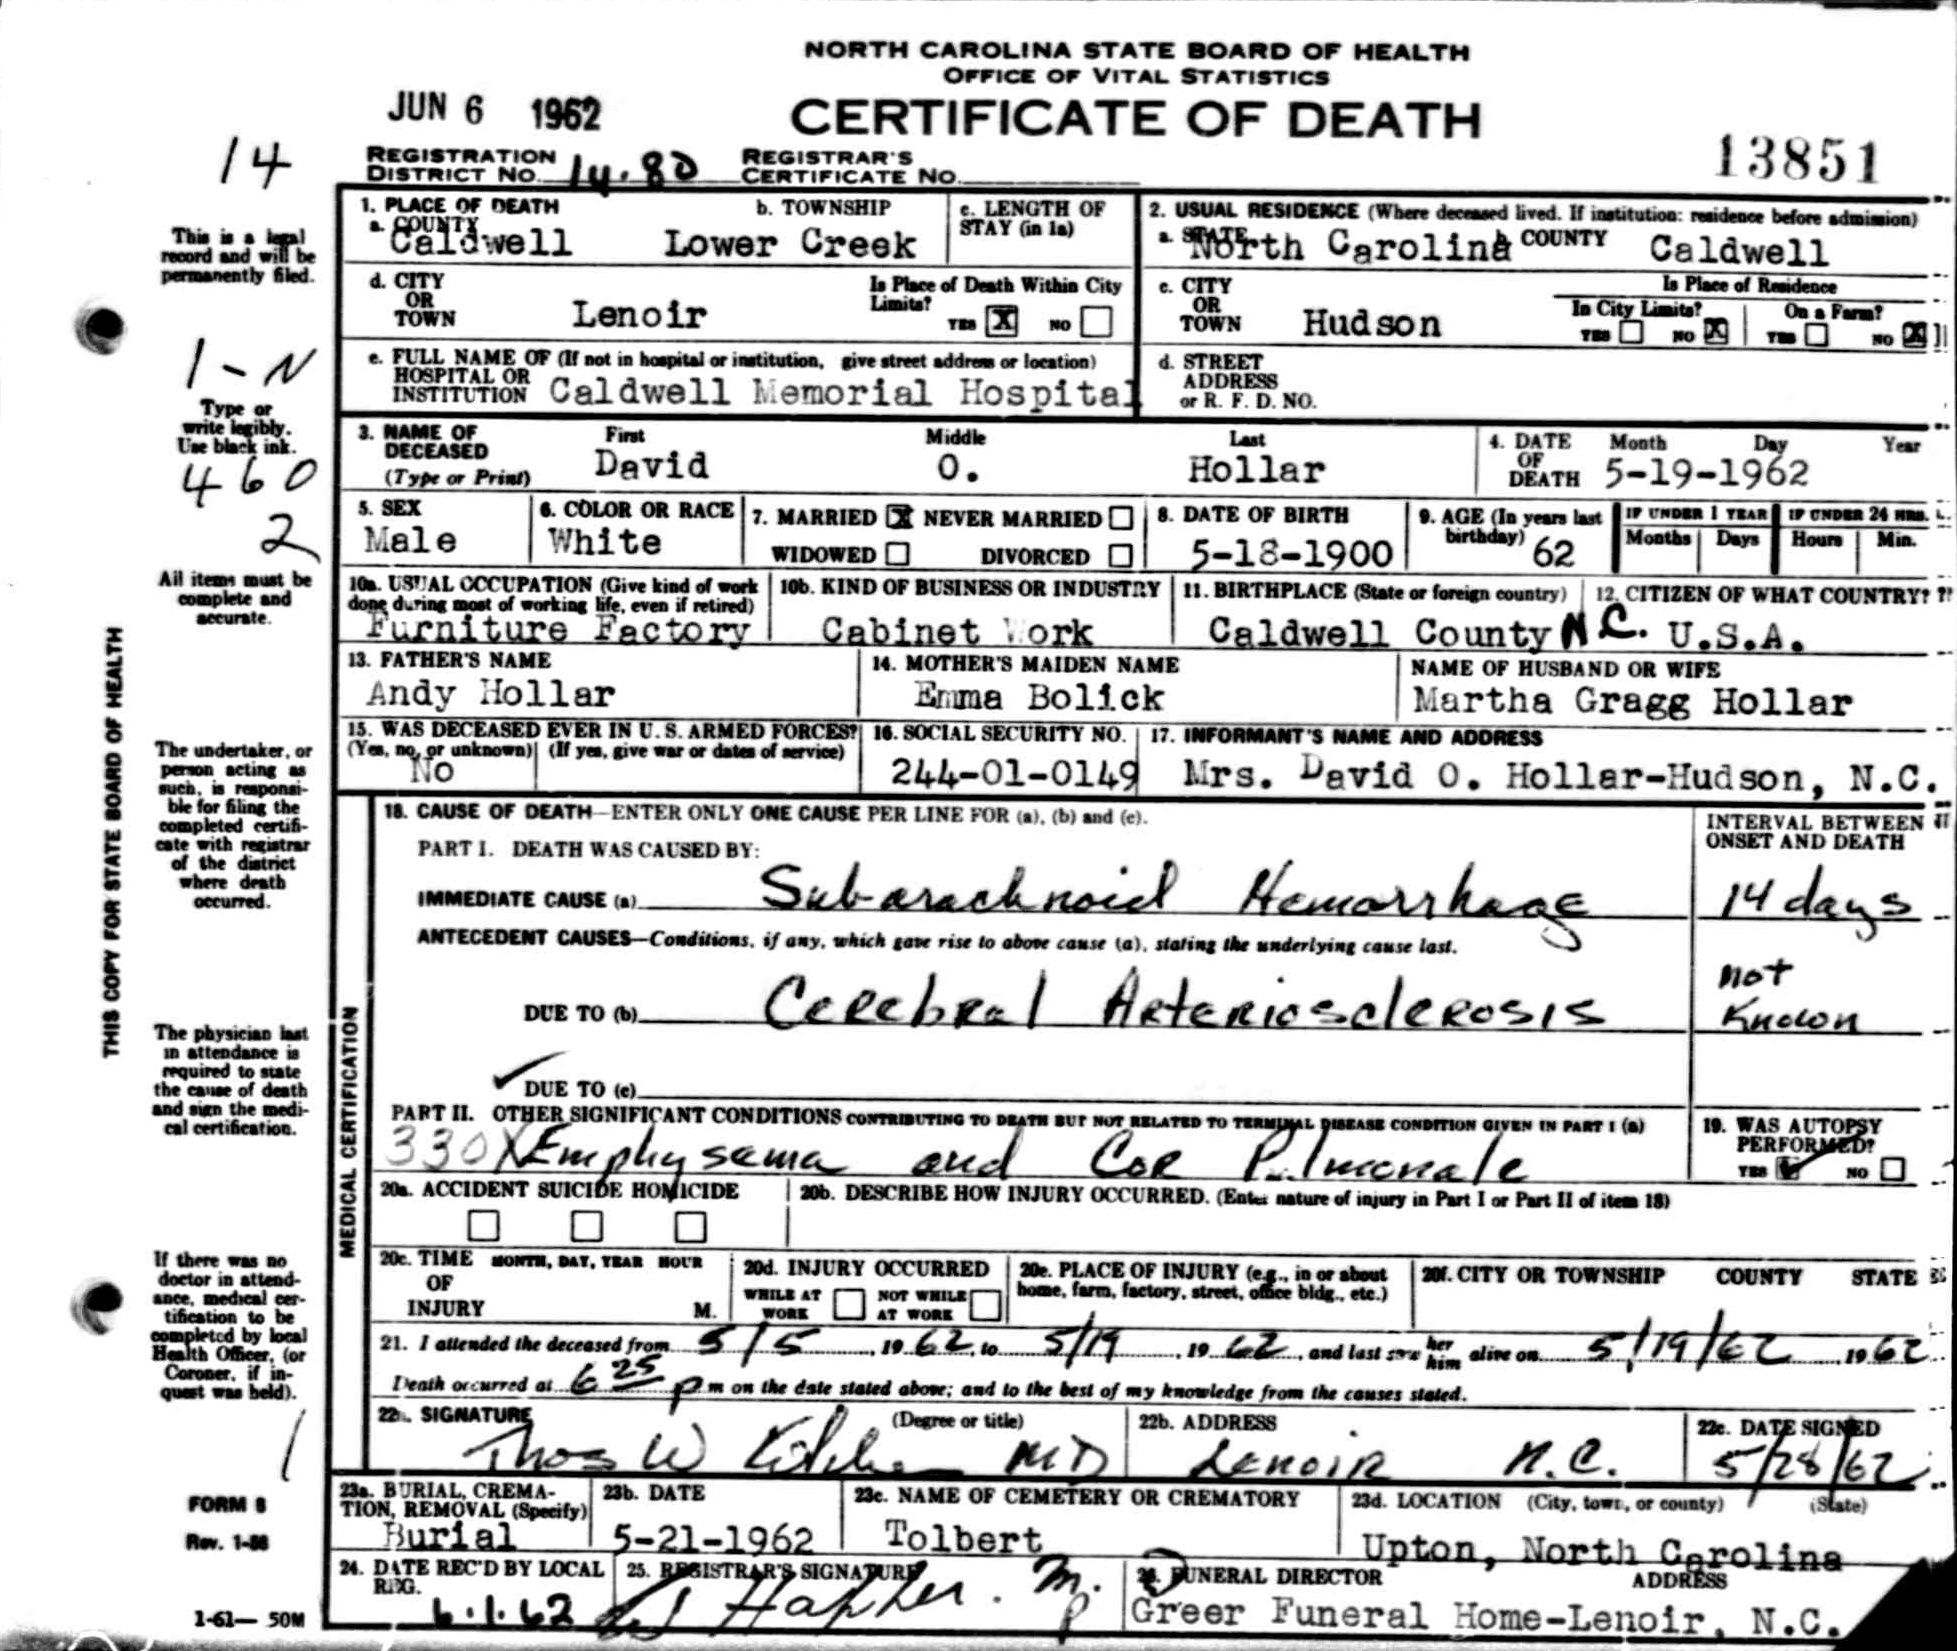 NORTH CAROLINA STATE BOARD OF HEALTH
OFFICE OF VITAL STATISTICS
JUN 6 1962
CERTIFICATE OF DEATH
13851
14
REGISTRATION DISTRICT NO. 14.80 REGISTRAR'S CERTIFICATE NO.
This is a legal record and will be permanently filed.
1. PLACE OF DEATH
a. COUNTY Caldwell
b. TOWNSHIP Lower Creek
c. LENGTH OF STAY (in 1a)
2. USUAL RESIDENCE (Where deceased lived. If institution: residence before admission)
a. STATE North Carolina b. COUNTY Caldwell
d. CITY OR TOWN Lenoir
Is Place of Death Within City Limits? YES X NO
c. CITY OR TOWN Hudson
Is Place of Residence
In City Limits? YES NO X
On a Farm? YES NO X
e. FULL NAME OF (If not in hospital or institution, give street address or location)
HOSPITAL OR INSTITUTION Caldwell Memorial Hospital
d. STREET ADDRESS or R. F. D. NO.
1-N
Type or write legibly. Use black ink.
460
2
3. NAME OF DECEASED (Type or Print)
First David Middle O. Last Hollar
4. DATE OF DEATH Month Day Year 5-19-1962
5. SEX Male
6. COLOR OR RACE White
7. MARRIED X NEVER MARRIED
WIDOWED DIVORCED
8. DATE OF BIRTH 5-18-1900
9. AGE (In years last birthday) 62
IF UNDER 1 YEAR Months Days
IF UNDER 24 HRS. Hours Min.
All items must be complete and accurate.
10a. USUAL OCCUPATION (Give kind of work done during most of working life, even if retired) Furniture Factory
10b. KIND OF BUSINESS OR INDUSTRY Cabinet Work
11. BIRTHPLACE (State or foreign country) Caldwell County N.C.
12. CITIZEN OF WHAT COUNTRY? U.S.A.
13. FATHER'S NAME Andy Hollar
14. MOTHER'S MAIDEN NAME Emma Bolick
NAME OF HUSBAND OR WIFE Martha Gragg Hollar
15. WAS DECEASED EVER IN U. S. ARMED FORCES?
(Yes, no, or unknown) (If yes, give war or dates of service)
No
16. SOCIAL SECURITY NO. 244-01-0149
17. INFORMANT'S NAME AND ADDRESS Mrs. David O. Hollar-Hudson, N.C.
THIS COPY FOR STATE BOARD OF HEALTH
The undertaker, or person acting as such, is responsible for filing the completed certificate with registrar of the district where death occurred.
MEDICAL CERTIFICATION
18. CAUSE OF DEATH—ENTER ONLY ONE CAUSE PER LINE FOR (a), (b) and (c).
INTERVAL BETWEEN ONSET AND DEATH
PART I. DEATH WAS CAUSED BY:
IMMEDIATE CAUSE (a) Sub-arachnoid Hemorrhage 14 days
ANTECEDENT CAUSES—Conditions, if any, which gave rise to above cause (a), stating the underlying cause last.
DUE TO (b) Cerebral Arteriosclerosis not known
DUE TO (c)
The physician last in attendance is required to state the cause of death and sign the medical certification.
PART II. OTHER SIGNIFICANT CONDITIONS CONTRIBUTING TO DEATH BUT NOT RELATED TO TERMINAL DISEASE CONDITION GIVEN IN PART I (a)
330X Emphysema and Cor Pulmonale
19. WAS AUTOPSY PERFORMED? YES NO
20a. ACCIDENT SUICIDE HOMICIDE
20b. DESCRIBE HOW INJURY OCCURRED. (Enter nature of injury in Part I or Part II of item 18)
20c. TIME OF INJURY MONTH, DAY, YEAR HOUR M.
20d. INJURY OCCURRED
WHILE AT WORK NOT WHILE AT WORK
20e. PLACE OF INJURY (e.g., in or about home, farm, factory, street, office bldg., etc.)
20f. CITY OR TOWNSHIP COUNTY STATE
If there was no doctor in attendance, medical certification to be completed by local Health Officer, (or Coroner, if inquest was held).
21. I attended the deceased from 5/5, 1962, to 5/19, 1962, and last saw her him alive on 5/19/62 1962
Death occurred at 6 25 p m on the date stated above; and to the best of my knowledge from the causes stated.
22a. SIGNATURE (Degree or title)
Thos W MD
22b. ADDRESS Lenoir N.C.
22c. DATE SIGNED 5/28/62
1
23a. BURIAL, CREMATION, REMOVAL (Specify) Burial
23b. DATE 5-21-1962
23c. NAME OF CEMETERY OR CREMATORY Tolbert
23d. LOCATION (City, town, or county) (State)
Upton, North Carolina
24. DATE REC'D BY LOCAL REG. 6.1.62
25. REGISTRAR'S SIGNATURE
FUNERAL DIRECTOR ADDRESS
Greer Funeral Home-Lenoir, N.C.
FORM 8
Rev. 1-56
1-61— 50M